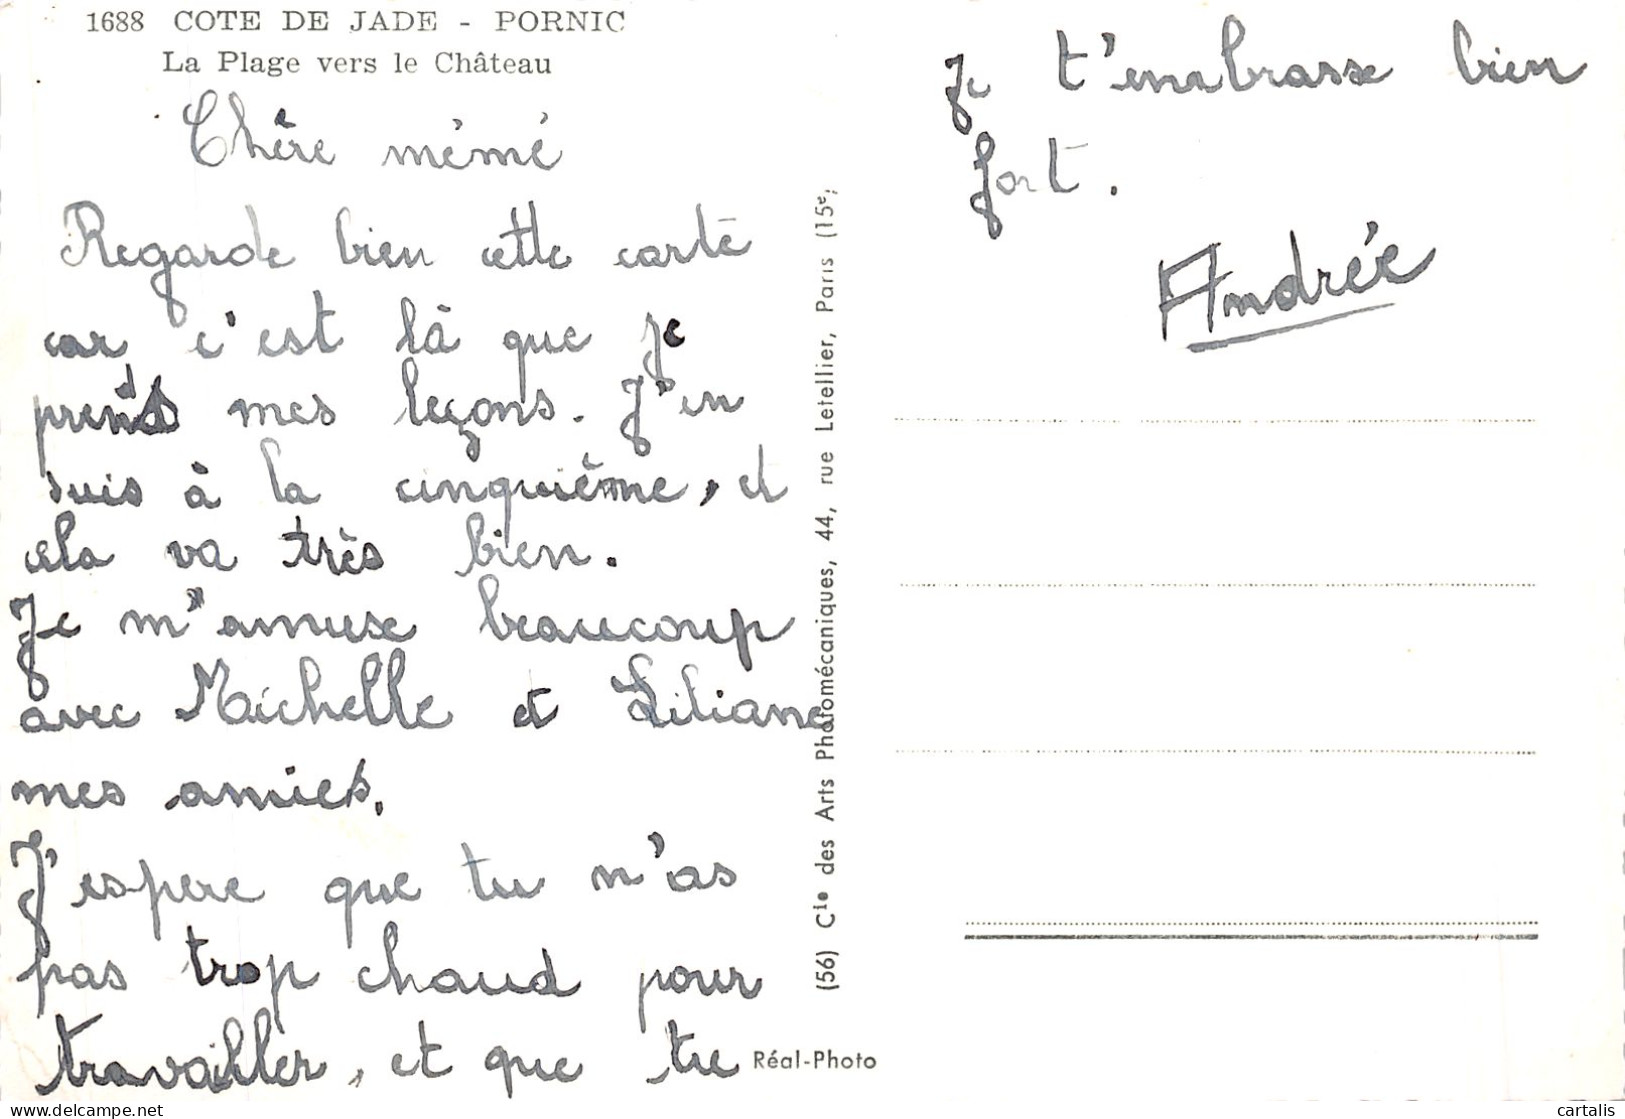 1688 COTE DE JADE - PORNIC
La Plage vers le Château
Chère mémé
Regarde bien cette carte
car c'est là que je
prends mes leçons. J'en
suis à la cinquième, et
cela va très bien.
Je m'amuse beaucoup
avec Michelle et Liliane
mes amies.
J'espere que tu n'as
pas trop chaud pour
travailler, et que tu
Réal-Photo
(56) Cie des Arts Photomécaniques, 44, rue Letellier, Paris (15e)
Je t'embrasse bien
fort.
Andrée
cartalis
delcampe.net